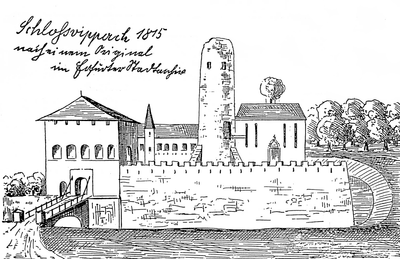 Schlossvippach 1815
nach einem Original
im Erfurter Stadtarchiv